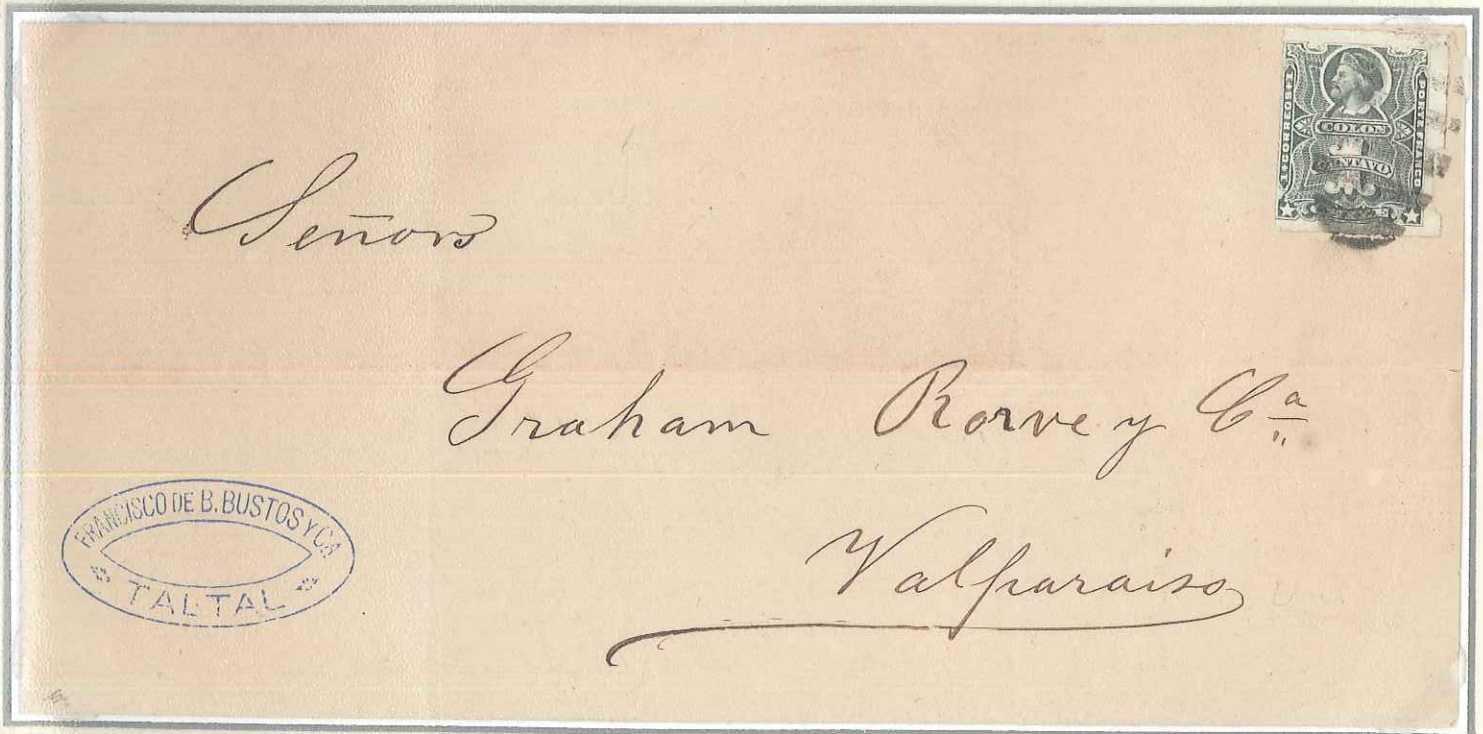 CORREOS 1
PORTE FRANCO
COLON
CENTAVO
Señores
Graham Rowe y Cª
Valparaiso
FRANCISCO DE B. BUSTOS Y CA
TALTAL